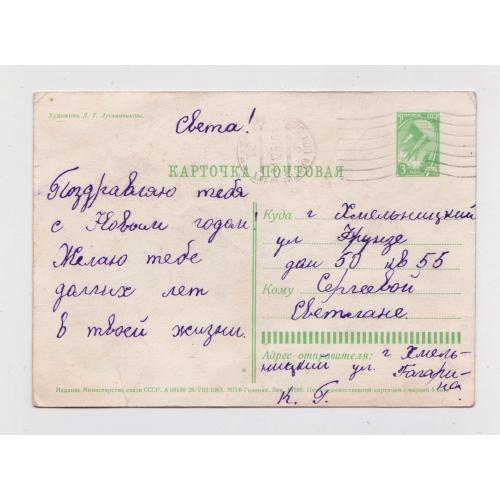 Художник Л. Г.
Света!
КАРТОЧКА ПОЧТОВАЯ
3
Поздравляю тебя
с Новым годом!
Желаю тебе
долгих лет
в твоей жизни.
Куда г Хмельницкий
ул Фрунзе
дом 50 кв 55
Кому Сергеевой
Светлане.
Адрес отправителя: г Хмель-
ницкий ул. Гагари-
на.
К. Г.
Издание Министерства связи СССР. А 08139 26/VIII 1963. МПФ Гознака. Зак.